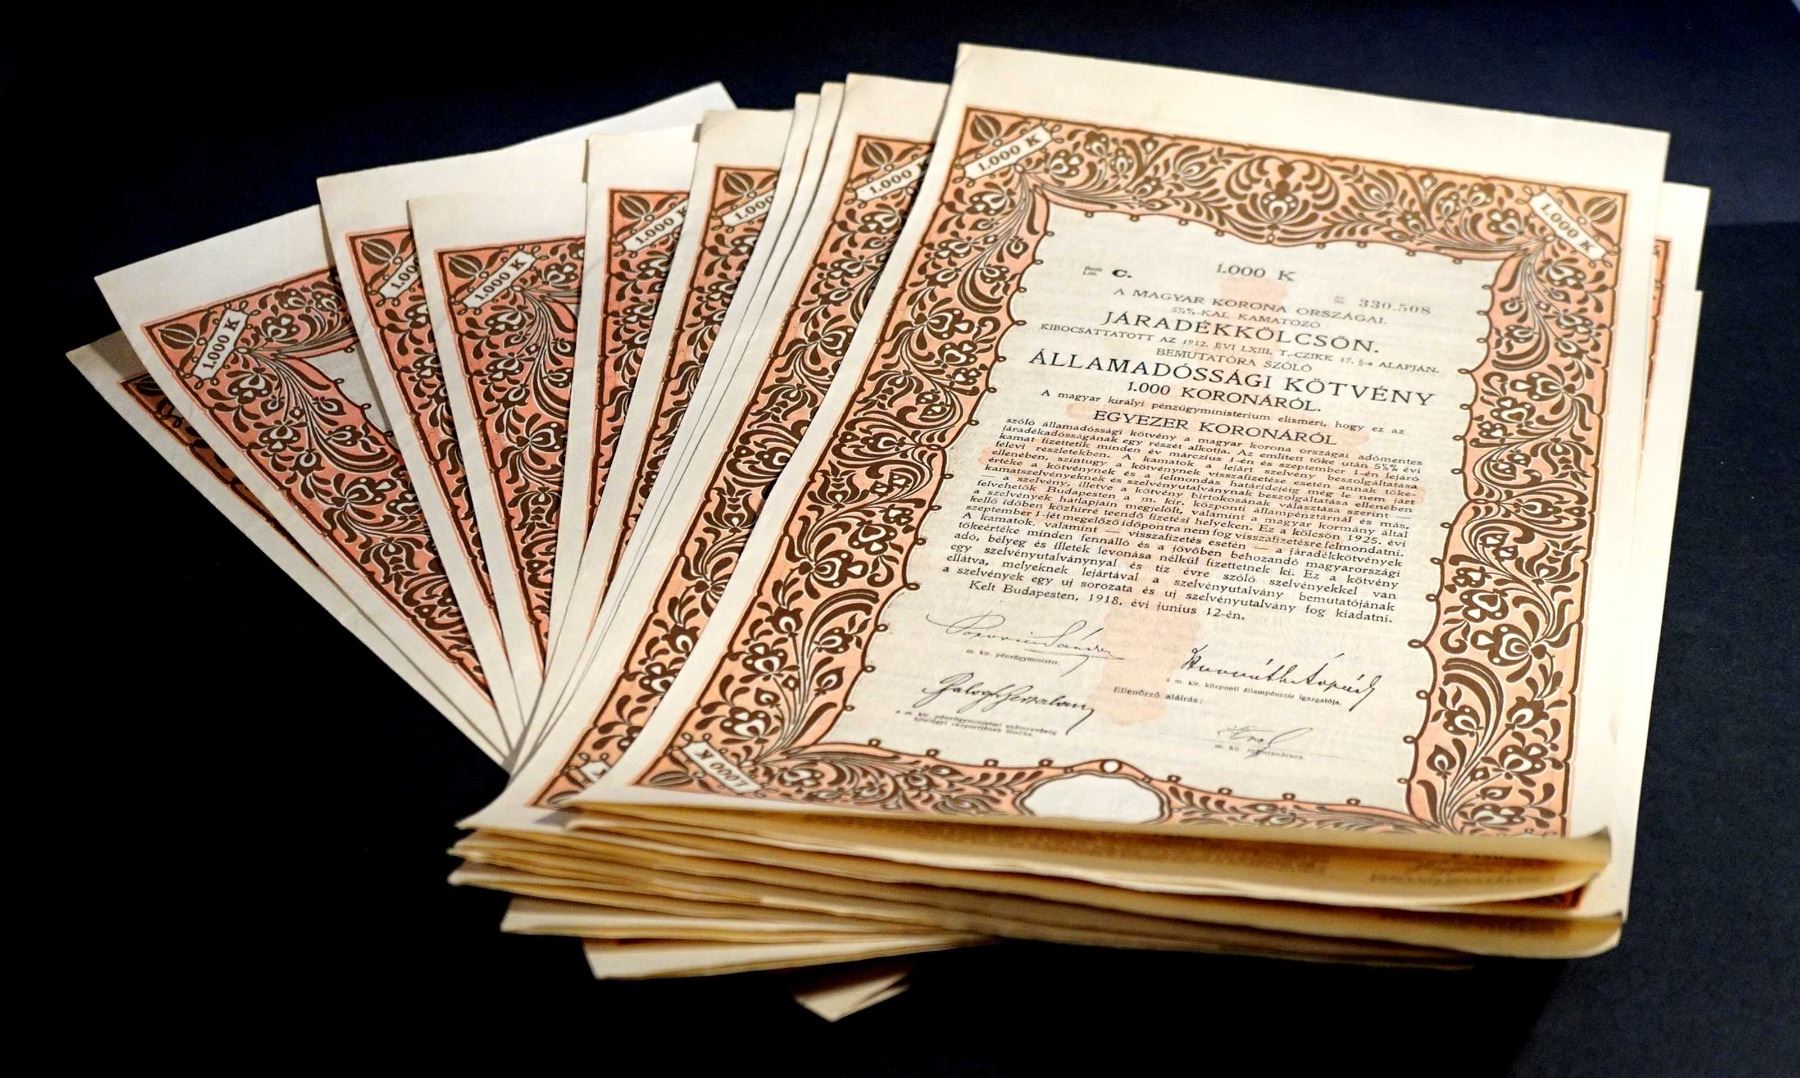 1.000 K
1.000 K
1.000 K
1.000 K
1.000
1.000
1.000 K
1.000 K
1.000 K
C.
1.000 K
330.508
A MAGYAR KORONA ORSZÁGAI
5½%-KAL KAMATOZÓ
JÁRADÉKKÖLCSÖN.
KIBOCSÁTTATOTT AZ 1912. ÉVI LXIII. T.-CZIKK 17. §-a ALAPJÁN.
BEMUTATÓRA SZÓLÓ
ÁLLAMADÓSSÁGI KÖTVÉNY
1.000 KORONÁRÓL.
A magyar királyi pénzügyministerium elismeri, hogy ez az
EGYEZER KORONÁRÓL
szóló államadóssági kötvény a magyar korona országai adómentes
járadékadósságának egy részét alkotja. Az említett tőke után 5½% évi
kamat fizettetik minden év márczius 1-én és szeptember 1-én lejáró
félévi részletekben. A kamatok a lejárt szelvény beszolgáltatása
ellenében, szintúgy a kötvénynek visszafizetése esetén annak tőke-
értéke a kötvénynek és a felmondás határidejéig még le nem járt
kamatszelvényeknek és szelvényutalványnak beszolgáltatása ellenében
— a szelvény, illetve a kötvény birtokosának választása szerint —
felvehetők Budapesten a m. kir. központi állampénztárnál és más,
a szelvények hátlapján megjelölt, valamint a magyar kormány által
kellő időben közhírré teendő fizetési helyeken. Ez a kölcsön 1925. évi
szeptember 1-jét megelőző időpontra nem fog visszafizetésre felmondatni.
A kamatok, valamint — visszafizetés esetén — a járadékkötvények
tőkeértéke minden fennálló és a jövőben behozandó magyarországi
adó, bélyeg és illeték levonása nélkül fizettetnek ki. Ez a kötvény
egy szelvényutalványnyal és tíz évre szóló szelvényekkel van
ellátva, melyeknek lejártával a szelvényutalvány bemutatójának
a szelvények egy uj sorozata és uj szelvényutalvány fog kiadatni.
Kelt Budapesten, 1918. évi junius 12-én.
m. kir. pénzügyminister.
a m. kir. központi állampénztár igazgatója.
Ellenőrző aláírás:
1.000 K